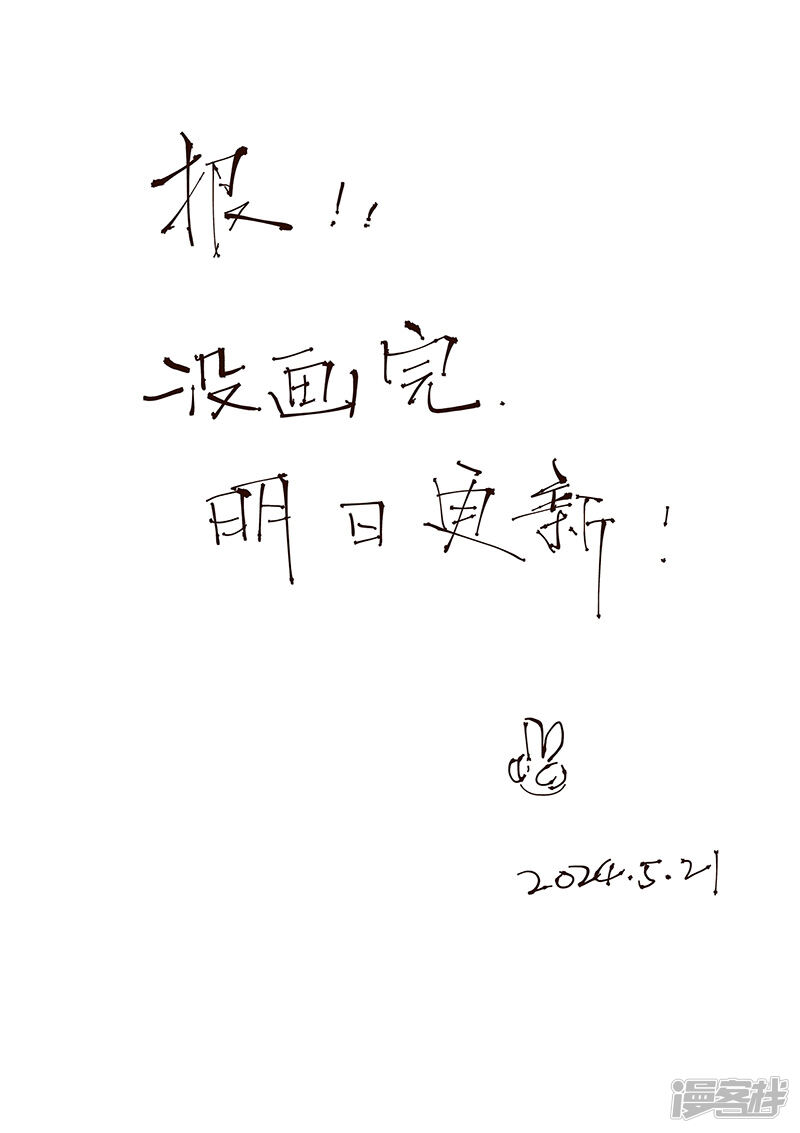 报！！
没画完.
明日更新！
2024.5.21
漫客栈